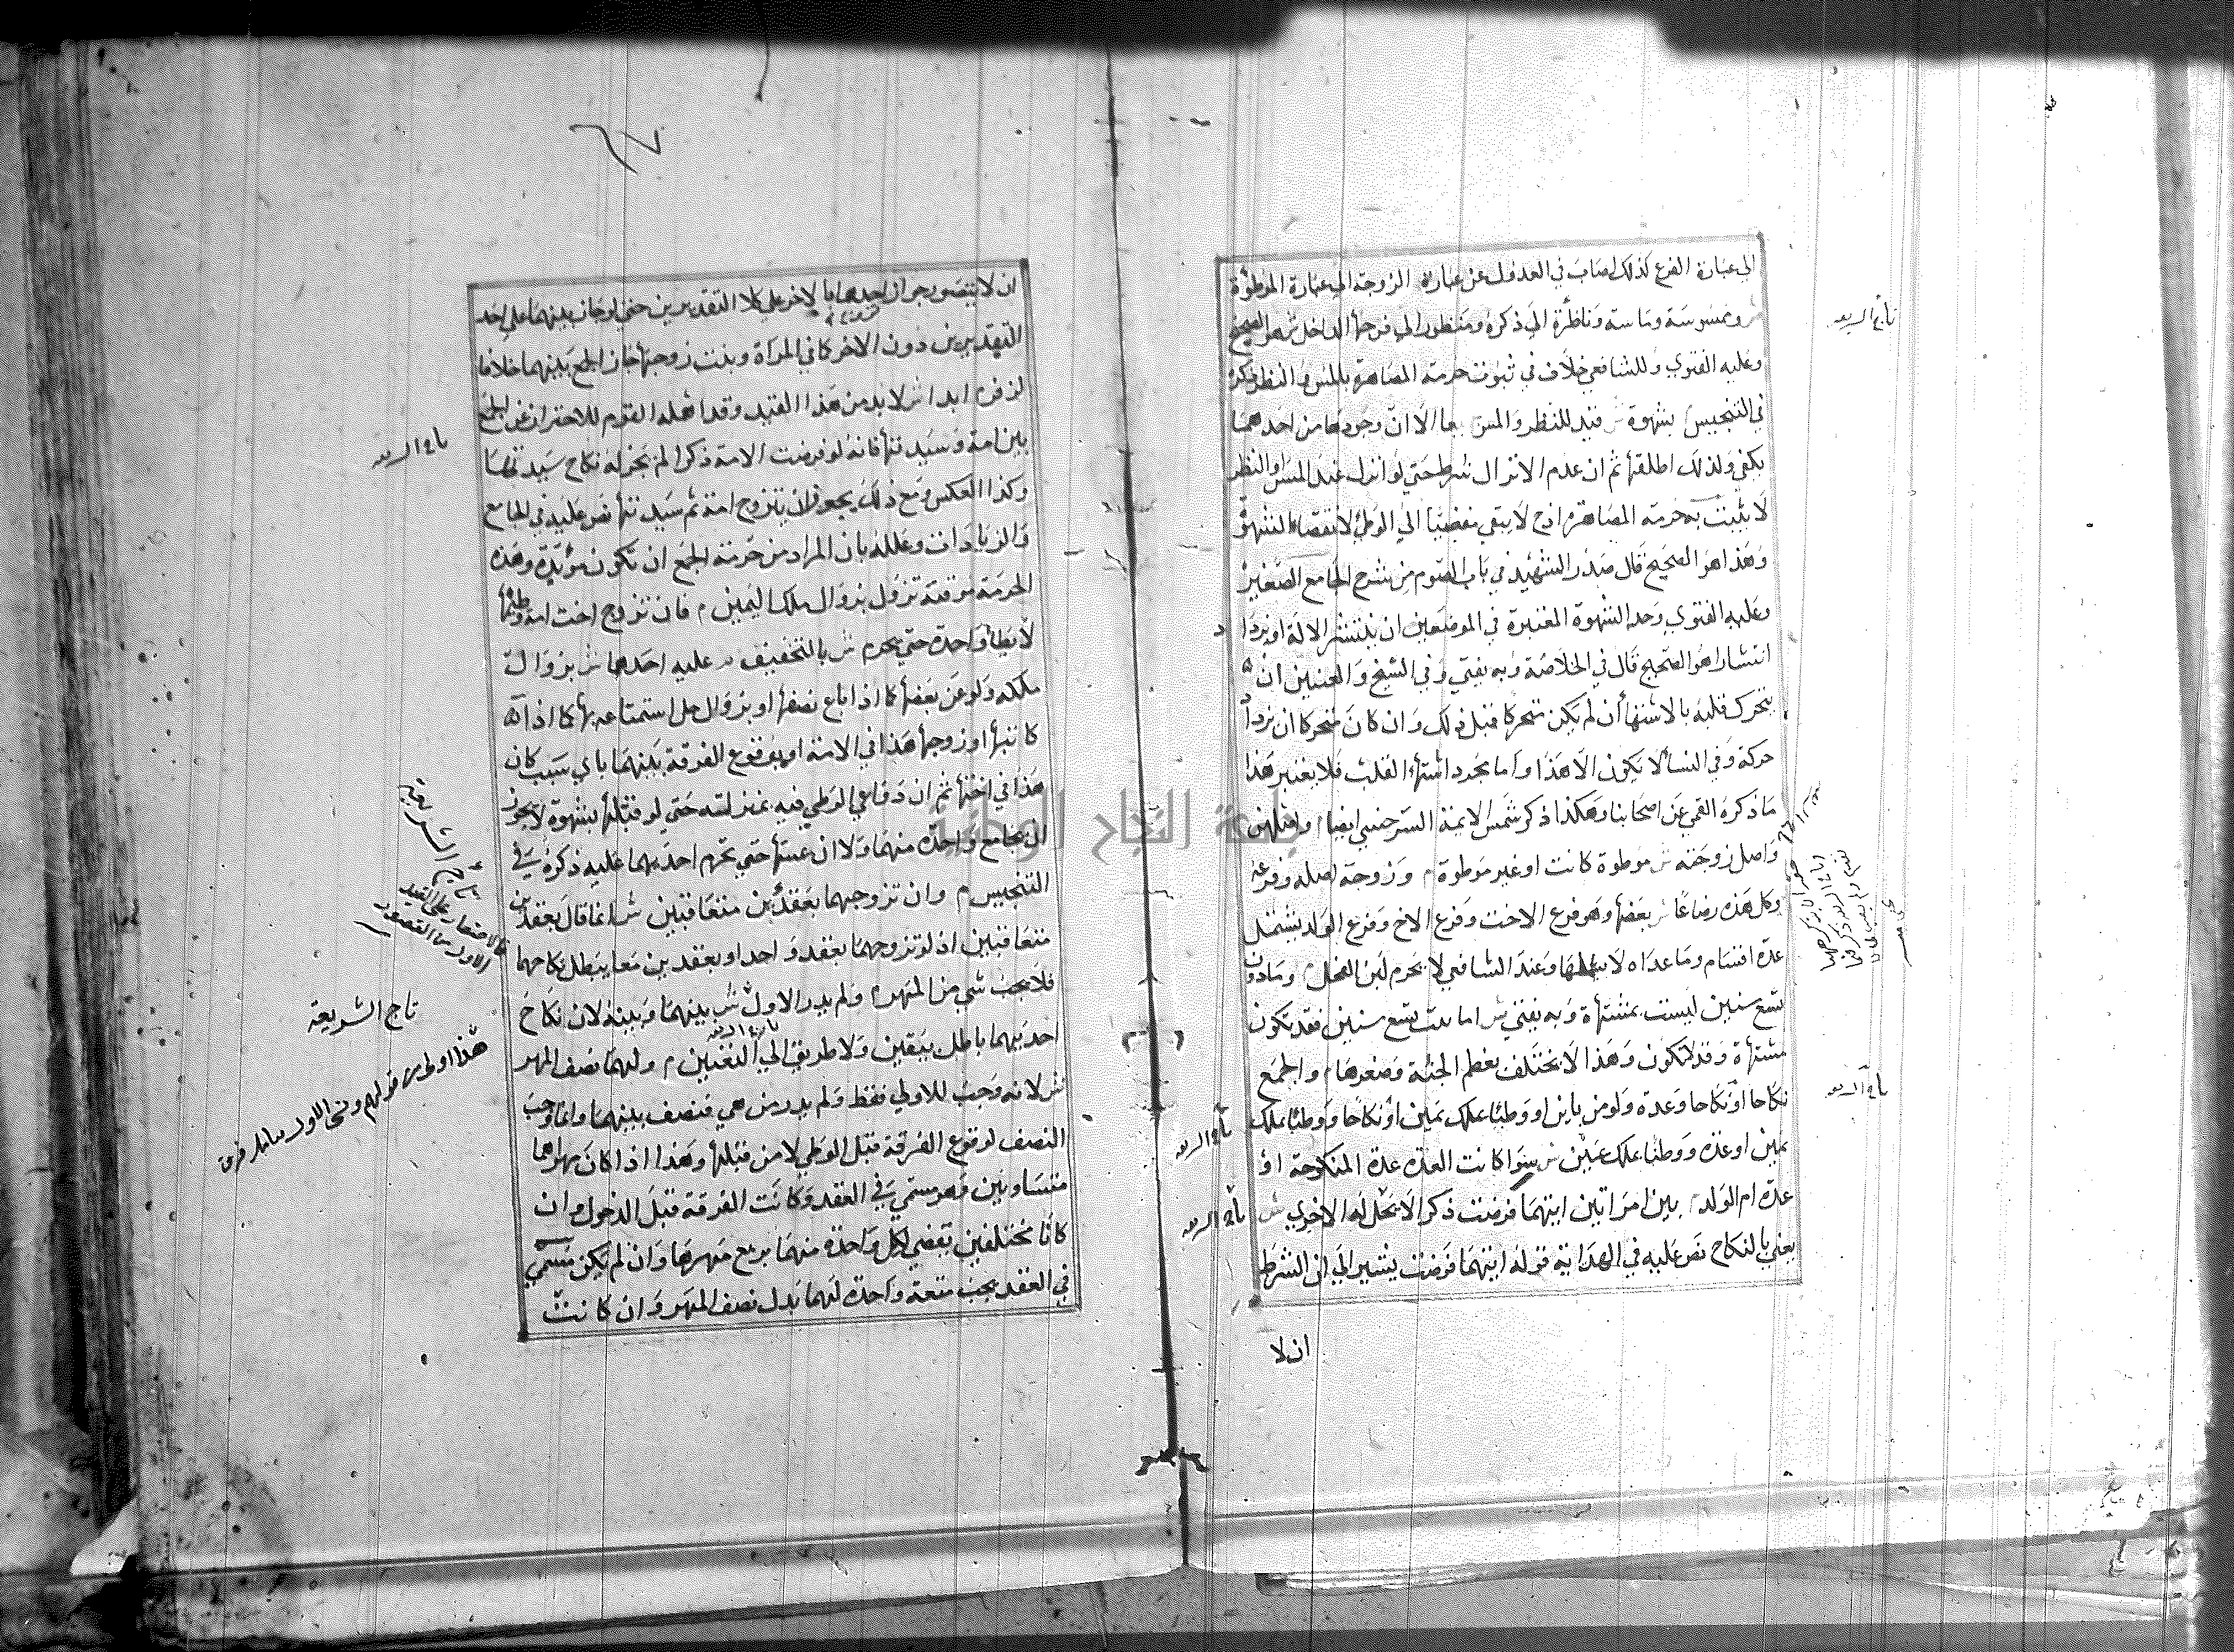 الي عبارة الفرع كذلك اصاب في العدول عن عبارة الزوجة الي عبارة الموطؤة
وممسوسة وماسة وناظرة الي ذكره ومنظور الي فرجها الداخل ش هو الصحيح
وعليه الفتوي وللشافعي خلاف في ثبوت حرمة المصاهرة بالمس والنظر ذكره
في التنجيس بشهوة ش قيد للنظر والمس الا ان وجودها من احدهما
يكفي ولذلك اطلقها ثم ان عدم الانزال شرط حتي لو انزل عند المس او النظر
لا يثبت به حرمة المصاهرة اذ لا يبقي مفضيا الي الوطئ لانقضاء الشهوة
وهذا هو الصحيح قال صدر الشهيد في باب الصوم من شرح الجامع الصغير
وعليه الفتوي وحد الشهوة المعتبرة في الموضعين ان ينتشر الالة او يزدا د
انتشارا هو الصحيح قال في الخلاصة وبه يفتي وفي الشيخ والعنين ان
يتحرك قلبه بالاشتها أن لم يكن متحركا قبل ذلك وان كان متحركا ان يزداد
حركة وفي النسا لا يكون الا هذا واما مجرد اشتهاء القلب فلا يعتبر هذا
ما ذكره القمي عن اصحابنا وهكذا ذكر شمس الايمة السرخسي ايضا م واصلهن
واصل زوجته ش موطوة كانت او غير موطوة م وزوجة اصله وفرعه
وكل هذه رضاعا ش بعضها وهو فرع الاخت وفرع الاخ وفرع الولد يشتمل
عدة اقسام وما عداه لا يشملها وعند الشافعي لا يحرم لبن الفحل م وما دون
تسع سنين ليست بمشتهاة وبه يفتي ش اما بنت تسع سنين فقد تكون
مشتهاة وقد لا تكون وهذا لا يختلف بعظم الجثة وصغرها م والجمع
نكاحا او نكاحا وعدة ولو من باين او وطئا بملك يمين او نكاحا ووطئا بملك
يمين او عدة ووطئا بملك يمين ش سوا كانت العدة عدة المنكوحة او
عدة ام الولد م بين امراتين ايتهما فرضت ذكرا لا يحل له الاخري ش
يعني بالنكاح نص عليه في الهداية قوله ايتهما فرضت يشير الي ان الشرط
ان لا
تاج الشريعه
تاج الشريعه
تاج الشريعه
تاج الشريعه
٦٧
ان لا يتصور جواز احدهما بالاخر علي كلا التقديرين حتي لو جاز بينهما علي احد
التقديرين دون الاخر كما في المراة وبنت زوجها جاز الجمع بينهما خلافا
لزفر م ابدا ش لا بد من هذا القيد وقد اهمله القوم للاحتراز عن الجمع
بين امة وسيدتها فانه لو فرضت الامة ذكرا لم يجز له نكاح سيدتها
وكذا العكس ومع ذلك يجوز ان يتزوج امة ثم سيدتها نص عليه في الجامع
والزيادات وعلله بان المراد من حرمة الجمع ان تكون مؤبدة وهذه
الحرمة موقتة تزول بزوال ملك اليمين م فان تزوج اخت امة وطئها
لا يطأ واحدة حتي يحرم ش بالتخفيف م عليه احدهما ش بزوال
ملكه ولو عن بعضها كما اذا باع نصفها او بزوال حل استمتاعه بها كما اذا
كاتبها او زوجها هذا في الامة او بوقوع الفرقة بينهما باي سبب كان
هذا في اختها ثم ان دواعي الوطي فيه بمنزلته حتي لو قبلها بشهوة لا يجوز
ان يجامع واحدة منهما ولا ان يمسها حتي تحرم احديهما عليه ذكره في
التنجيس م وان تزوجهما بعقدين متعاقبين ش انما قال بعقدين
متعاقبين اذ لو تزوجهما بعقد واحد او بعقدين معا يبطل نكاحهما
فلا يجب شي من المهر م ولم يدر الاول ش بينهما وبينه لان نكاح
احديهما باطل بيقين ولا طريق الي التعيين م ولهما نصف المهر
ش لانه وجب للاولي فقط ولم يدر من هي فتنصف بينهما وانما وجب
النصف لوقوع الفرقة قبل الوطي لا من قبلها وهذا اذا كان مهراهما
متساويين وهو مسمي في العقد وكانت الفرقة قبل الدخول وان
كانا مختلفين تقضي لكل واحدة منهما بربع مهرها وان لم يكن مسمي
في العقد يجب متعة واحدة لهما بدل نصف المهر وان كانت
تاج الشريعه
تاج الشريعة
تاج الشريعة